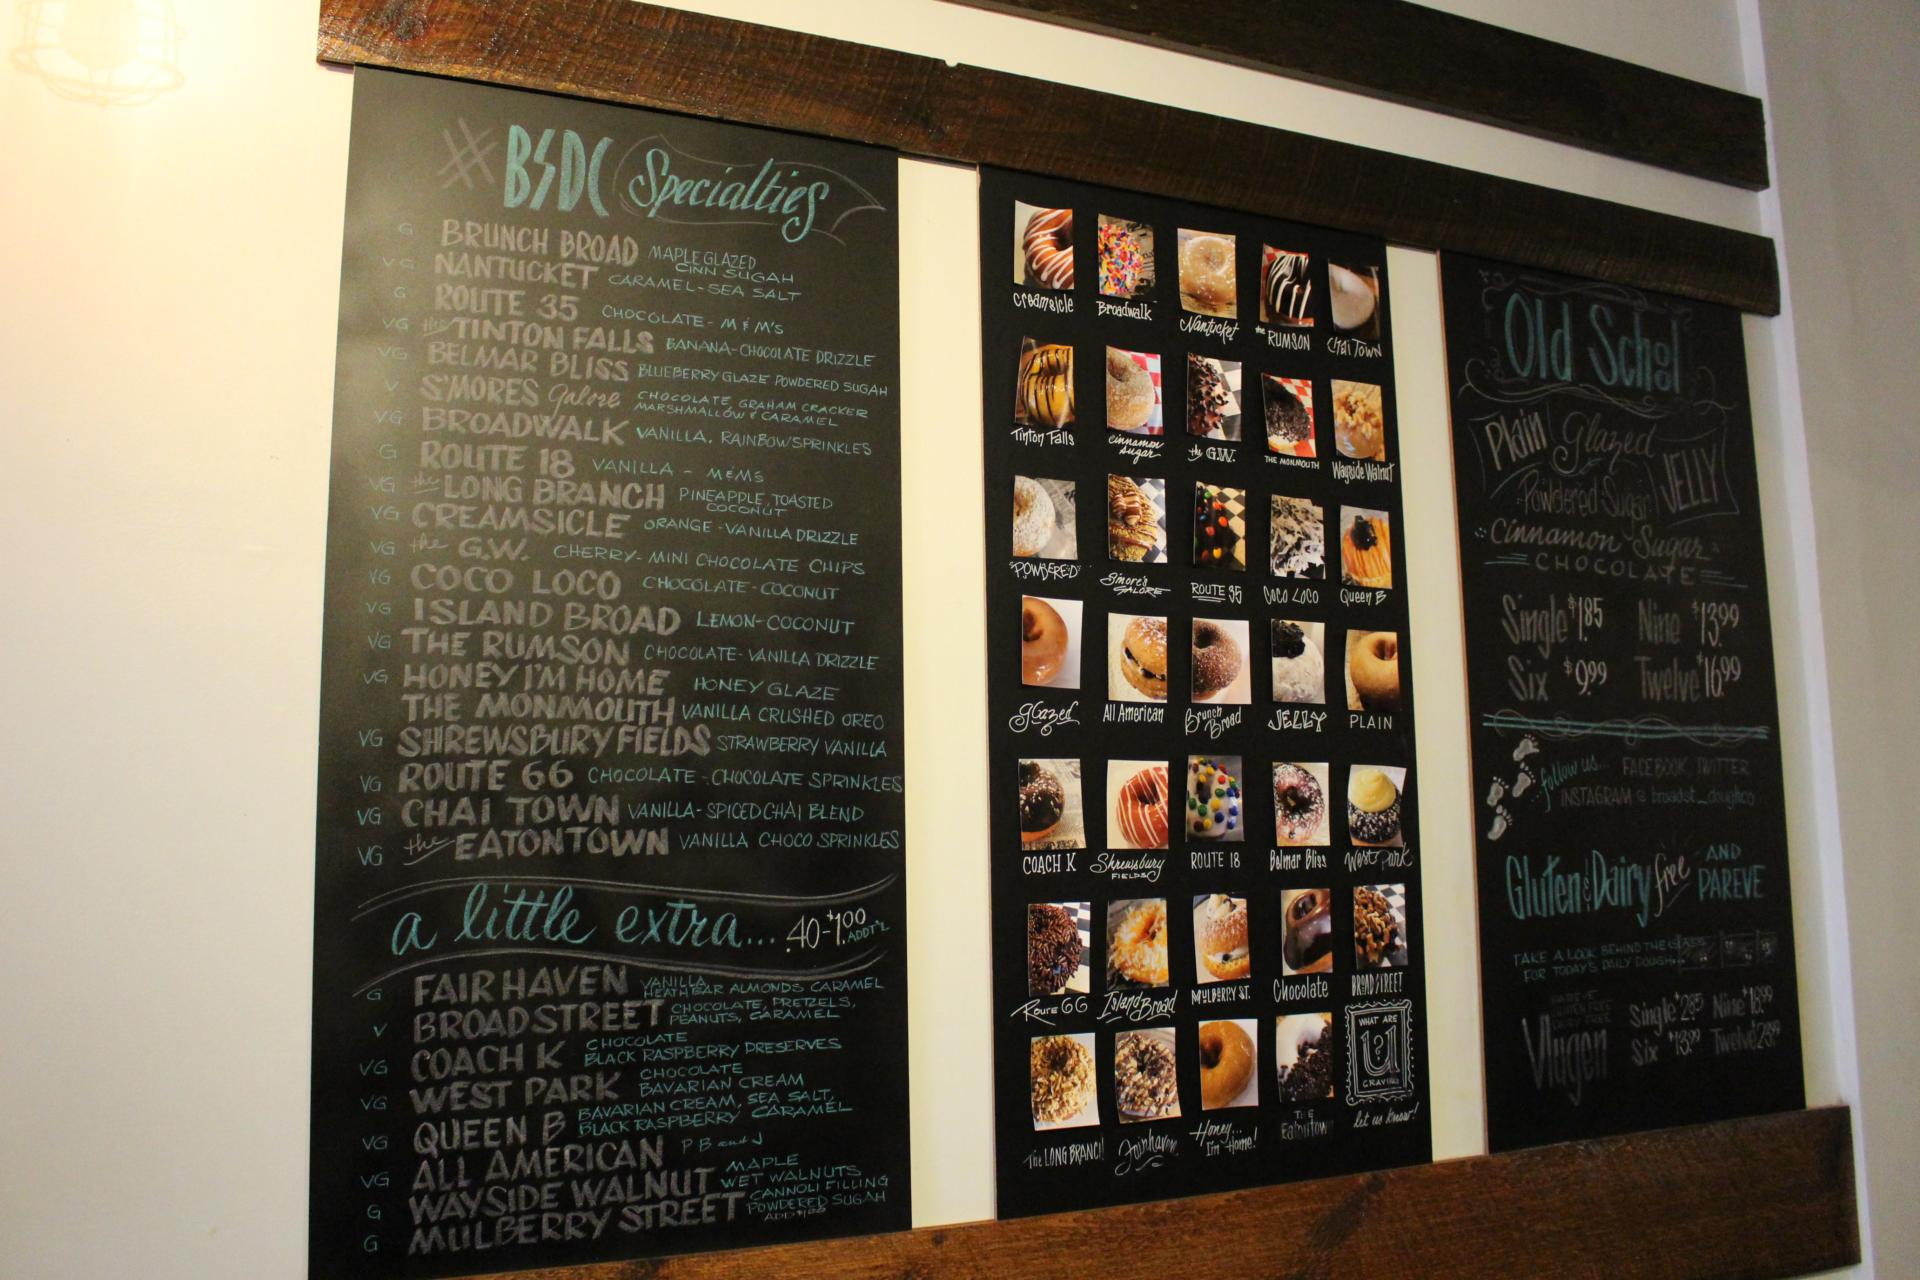 # BSDC Specialties
G BRUNCH BROAD MAPLE GLAZED CINN SUGAH
VG NANTUCKET CARAMEL-SEA SALT
G ROUTE 35 CHOCOLATE - M & M's
VG the TINTON FALLS BANANA-CHOCOLATE DRIZZLE
VG BELMAR BLISS BLUEBERRY GLAZE POWDERED SUGAH
V S'MORES Galore CHOCOLATE, GRAHAM CRACKER MARSHMALLOW & CARAMEL
VG BROADWALK VANILLA, RAINBOW SPRINKLES
G ROUTE 18 VANILLA - M&Ms
VG the LONG BRANCH PINEAPPLE, TOASTED COCONUT
VG CREAMSICLE ORANGE-VANILLA DRIZZLE
VG the G.W. CHERRY-MINI CHOCOLATE CHIPS
VG COCO LOCO CHOCOLATE-COCONUT
VG ISLAND BROAD LEMON-COCONUT
VG THE RUMSON CHOCOLATE-VANILLA DRIZZLE
VG HONEY I'M HOME HONEY GLAZE
THE MONMOUTH VANILLA CRUSHED OREO
VG SHREWSBURY FIELDS STRAWBERRY VANILLA
VG ROUTE 66 CHOCOLATE - CHOCOLATE SPRINKLES
VG CHAI TOWN VANILLA-SPICED CHAI BLEND
VG the EATONTOWN VANILLA CHOCO SPRINKLES
a little extra... .40-$1.00 ADDT'L
G FAIR HAVEN VANILLA HEATH BAR ALMONDS CARAMEL
V BROAD STREET CHOCOLATE, PRETZELS, PEANUTS, CARAMEL
VG COACH K CHOCOLATE BLACK RASPBERRY PRESERVES
VG WEST PARK CHOCOLATE BAVARIAN CREAM
VG QUEEN B BAVARIAN CREAM, SEA SALT, BLACK RASPBERRY CARAMEL
VG ALL AMERICAN PB and J
G WAYSIDE WALNUT MAPLE WET WALNUTS
G MULBERRY STREET CANNOLI FILLING POWDERED SUGAH ADD $1.00
Creamsicle Broadwalk Nantucket the RUMSON Chai Town
Tinton Falls cinnamon sugar the G.W. THE MONMOUTH Wayside Walnut
"POWDERED" S'more's GALORE ROUTE 35 COCO LOCO Queen B
glazed All American Brunch Broad JELLY PLAIN
COACH K Shrewsbury FIELDS ROUTE 18 Belmar Bliss West Park
Route 66 Island Broad MULBERRY ST. Chocolate BROAD STREET!
The LONG BRANCH Fairhaven Honey... I'm Home! THE Eatontown
WHAT ARE
U?
CRAVING
let us know!
Old School
Plain Glazed
Powdered Sugar JELLY
Cinnamon Sugar
CHOCOLATE
Single $1.85 Nine $13.99
Six $9.99 Twelve $16.99
follow us... FACEBOOK, TWITTER
INSTAGRAM @ broadst_doughco
Gluten & Dairy free AND PAREVE
TAKE A LOOK BEHIND THE GLASS
FOR TODAY'S DAILY DOUGH...
GLUTEN FREE
DAIRY FREE
Vlugen
Single $2.85 Nine $18.99
Six $13.99 Twelve 23.99